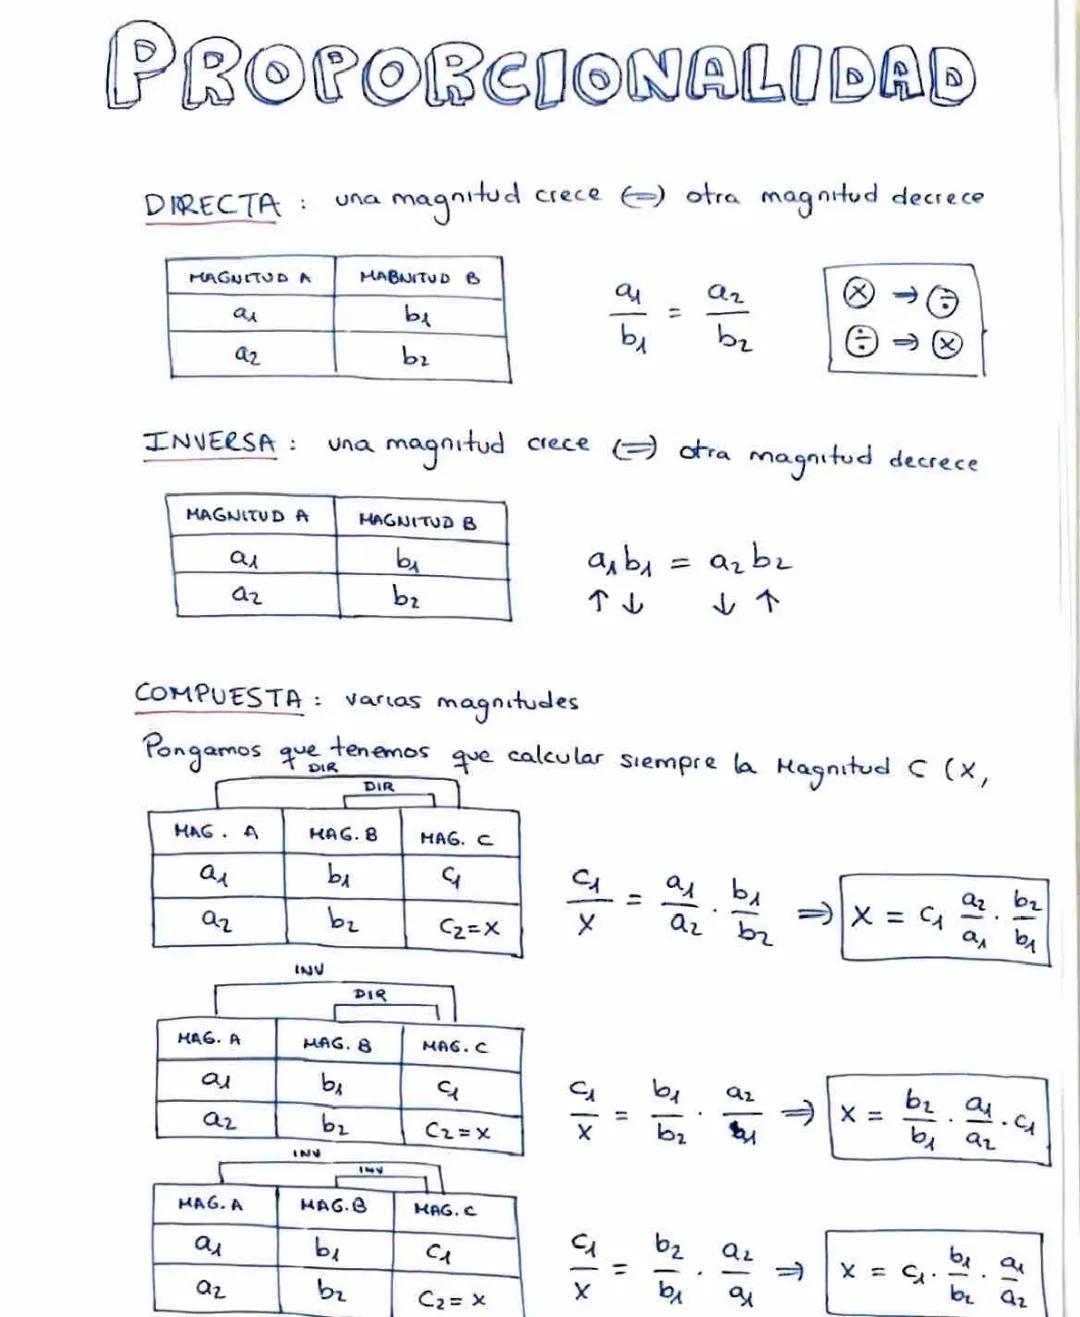 PROPORCIONALIDAD
DIRECTA : una magnitud crece (=) otra magnitud decrece
MAGNITUD A MABNITUD B
a1 b1
a2 b2
a1/b1 = a2/b2
ⓧ ⇒ ➗
➗ ⇒ ⓧ
INVERSA : una magnitud crece (=) otra magnitud decrece
MAGNITUD A MAGNITUD B
a1 b1
a2 b2
a1b1 = a2b2
↑ ↓ ↓ ↑
COMPUESTA : varias magnitudes
Pongamos que tenemos que calcular siempre la Magnitud C (X,
DIR
DIR
MAG. A MAG. B MAG. C
a1 b1 C1
a2 b2 C2=X
C1/X = a1/a2 · b1/b2 ⇒ X = C1 a2/a1 · b2/b1
INV
DIR
MAG. A MAG. B MAG. C
a1 b1 C1
a2 b2 C2=X
C1/X = b1/b2 · a2/ ⇒ X = b2/b1 · a1/a2 · C1
INV
INV
MAG. A MAG. B MAG. C
a1 b1 C1
a2 b2 C2=X
C1/X = b2/b1 · a2/a1 ⇒ X = C1 · b1/b2 · a1/a2